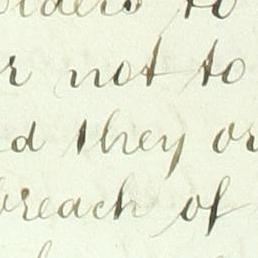 olders to
r not to
d they or
breach of